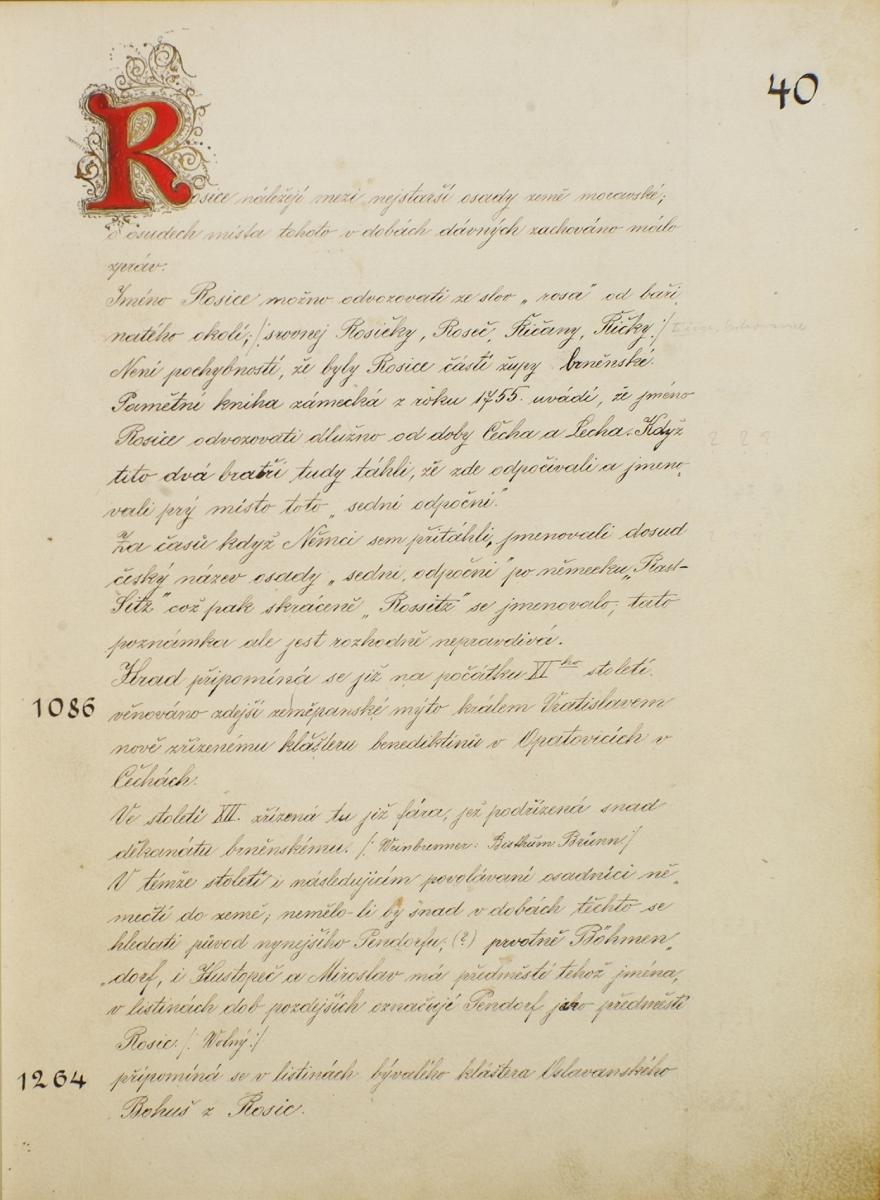 40
Rosice náležejí mezi nejstarší osady země moravské;
o osudech místa tohoto v dobách dávných zachováno málo
zpráv:
Jméno Rosice možno odvozovati ze slov „rosa" od baži„
natého okolí; /:srovnej Rosičky, Roseč, Řičany, Řičky:/
Není pochybností, že byly Rosice částí župy brněnské.
Pamětní kniha zámecká z roku 1755. uvádí, že jméno
Rosice odvozovati dlužno od doby Čecha a Lecha. Když
tito dvá bratří tudy táhli, že zde odpočívali a jmeno„
vali prý místo toto „sedni odpočni."
Za časů když Němci sem přitáhli, jmenovali dosud
český název osady „sedni, odpočni" po německu „Rast-
Sitz" což pak skráceně „Rossitz" se jmenovalo; tato
poznámka ale jest rozhodně nepravdivá.
Hrad připomíná se již na počátku XI ho století.
1086 věnováno zdejší zeměpanské mýto králem Vratislavem
nově zřízenému klášteru benediktinů v Opatovicích v
Čechách.
Ve století XII. zřízená tu již fára, jež podřízená snad
děkanátu brněnskému. /: Weinbrenner: Bisthum Brünn:/
V témže století i následujícím povoláváni osadníci ně„
mečtí do země; nemělo-li by snad v dobách těchto se
hledati původ nynejšího Pendorfu; (?) prvotně Böhmen„
„dorf, i Hustopeč a Miroslav má předměstí tehož jména,
v listinách dob pozdejších označují Pendorf jako předměstí
Rosic. /: Wolný:/
1264 připomíná se v listinách bývalého kláštera Oslavanského
Bohuš z Rosic.